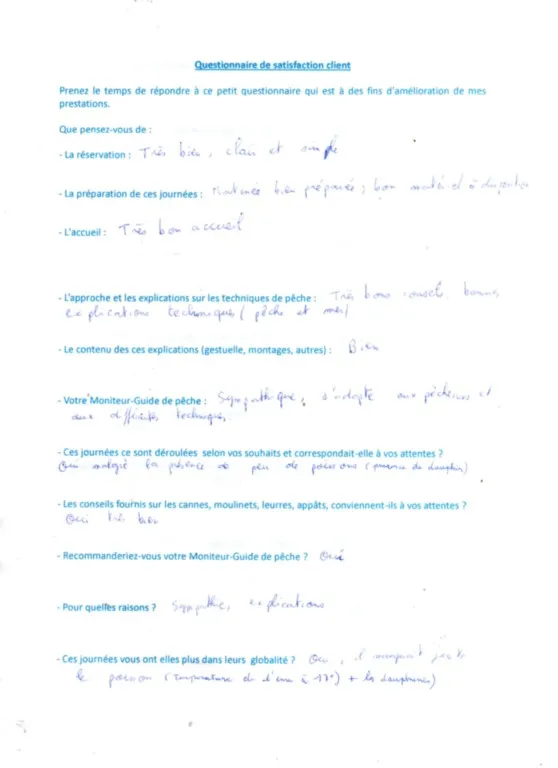 Questionnaire de satisfaction client
Prenez le temps de répondre à ce petit questionnaire qui est à des fins d'amélioration de mes
prestations.
Que pensez-vous de :
- La réservation : Très bien, clair et simple
- La préparation de ces journées : Matinée bien préparée ; bon matériel à disposition
- L'accueil : Très bon accueil
- L'approche et les explications sur les techniques de pêche : Très bons conseils, bonnes
explications techniques (pêche et mer)
- Le contenu des ces explications (gestuelle, montages, autres) : Bien
- Votre Moniteur-Guide de pêche : Sympathique, s'adapte aux pêcheurs et
aux difficultés techniques.
- Ces journées ce sont déroulées selon vos souhaits et correspondait-elle à vos attentes ?
Oui malgré la présence de peu de poissons (présence de dauphins)
- Les conseils fournis sur les cannes, moulinets, leurres, appâts, conviennent-ils à vos attentes ?
Oui très bien
- Recommanderiez-vous votre Moniteur-Guide de pêche ? Oui
- Pour quelles raisons ? Sympathie, explications
- Ces journées vous ont elles plus dans leurs globalité ? Oui, il manquait juste
le poisson (Température de l'eau à 17°) + les dauphins)